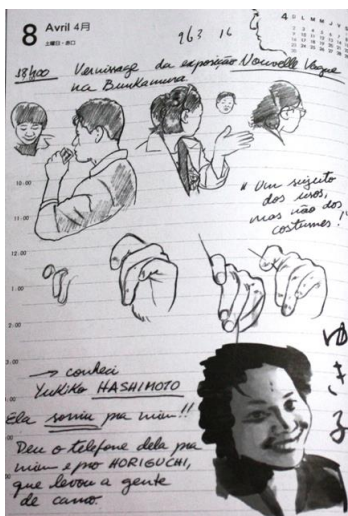 8 Avril 4月
土曜日・赤口
4
D L M M J V S
963 16
18h00 Vernissage da exposição Nouvelle Vague
na Bunkamura
" Um sujeito
dos usos,
mas não dos
costumes!"
10:00
11:00
1:00
2:00
→ conheci
YuKiKo HASHIMOTO
Ela sorriu pra mim!!
Deu o telefone dela pra
mim e pro HORIGUCHI,
que levou a gente
de carro.
ゆ
き
子